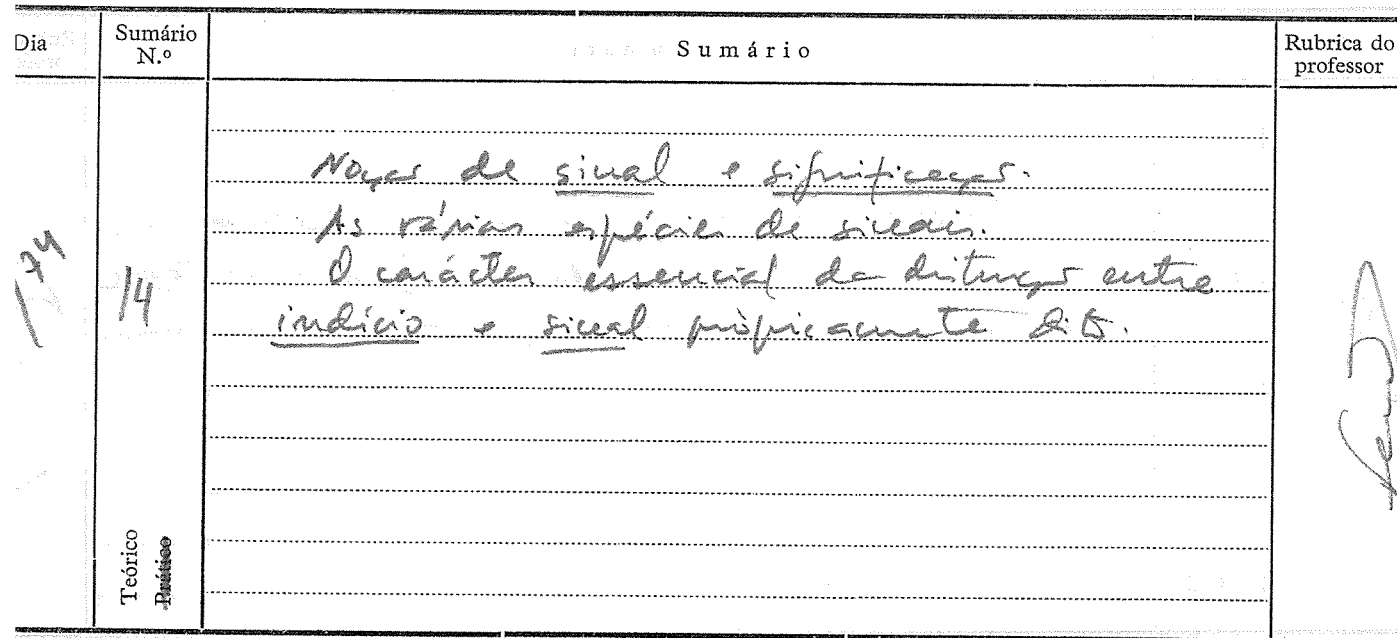 Dia
Sumário
N.º
Sumário
Rubrica do
professor
Noção de sinal e significação.
As várias espécies de sinais.
O carácter essencial da distinção entre
indício e sinal pròpriamente dito.
14
74
Teórico
Prático